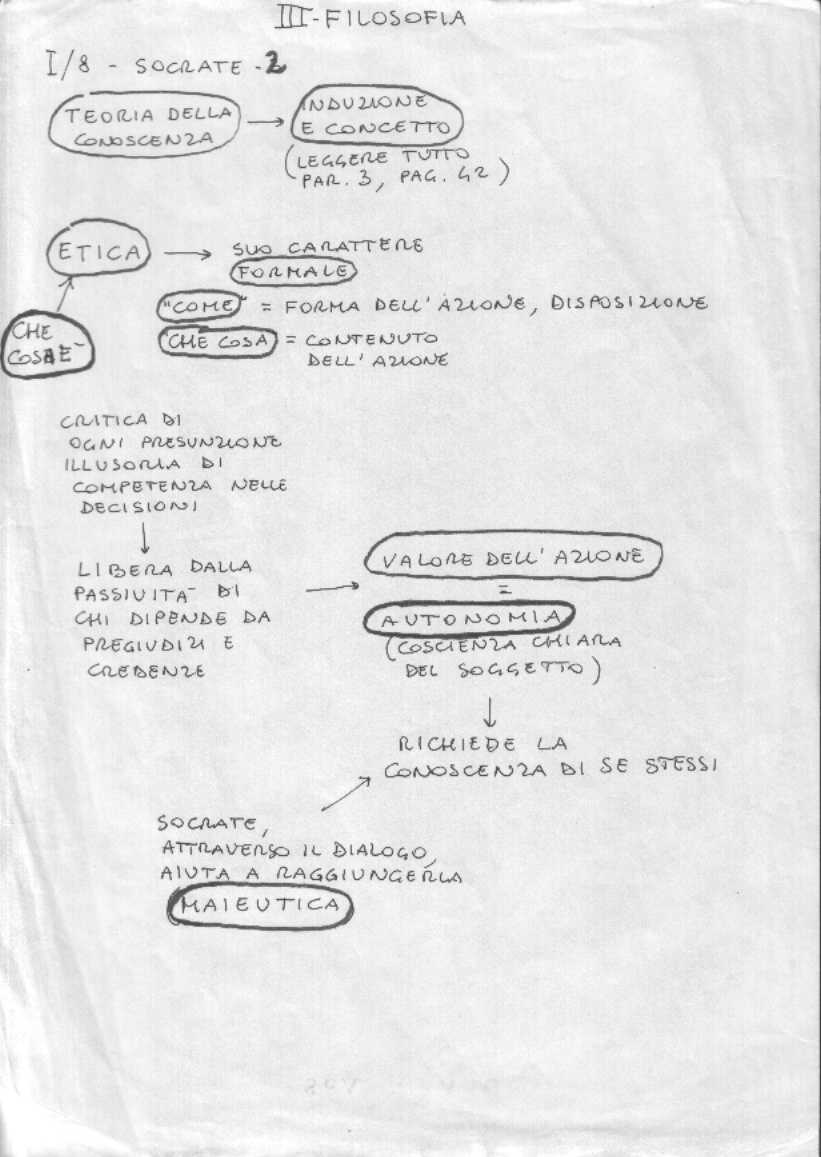 III - FILOSOFIA
I/8 - SOCRATE - 2
TEORIA DELLA
CONOSCENZA
INDUZIONE
E CONCETTO
(LEGGERE TUTTO
PAR. 3, PAG. 42)
ETICA
SUO CARATTERE
FORMALE
"COME" = FORMA DELL'AZIONE, DISPOSIZIONE
CHE
COS'È
CHE COSA = CONTENUTO
DELL'AZIONE
CRITICA DI
OGNI PRESUNZIONE
ILLUSORIA DI
COMPETENZA NELLE
DECISIONI
LIBERA DALLA
PASSIVITÀ DI
CHI DIPENDE DA
PREGIUDIZI E
CREDENZE
VALORE DELL'AZIONE
=
AUTONOMIA
(COSCIENZA CHIARA
DEL SOGGETTO)
RICHIEDE LA
CONOSCENZA DI SE STESSI
SOCRATE,
ATTRAVERSO IL DIALOGO,
AIUTA A RAGGIUNGERLA
MAIEUTICA